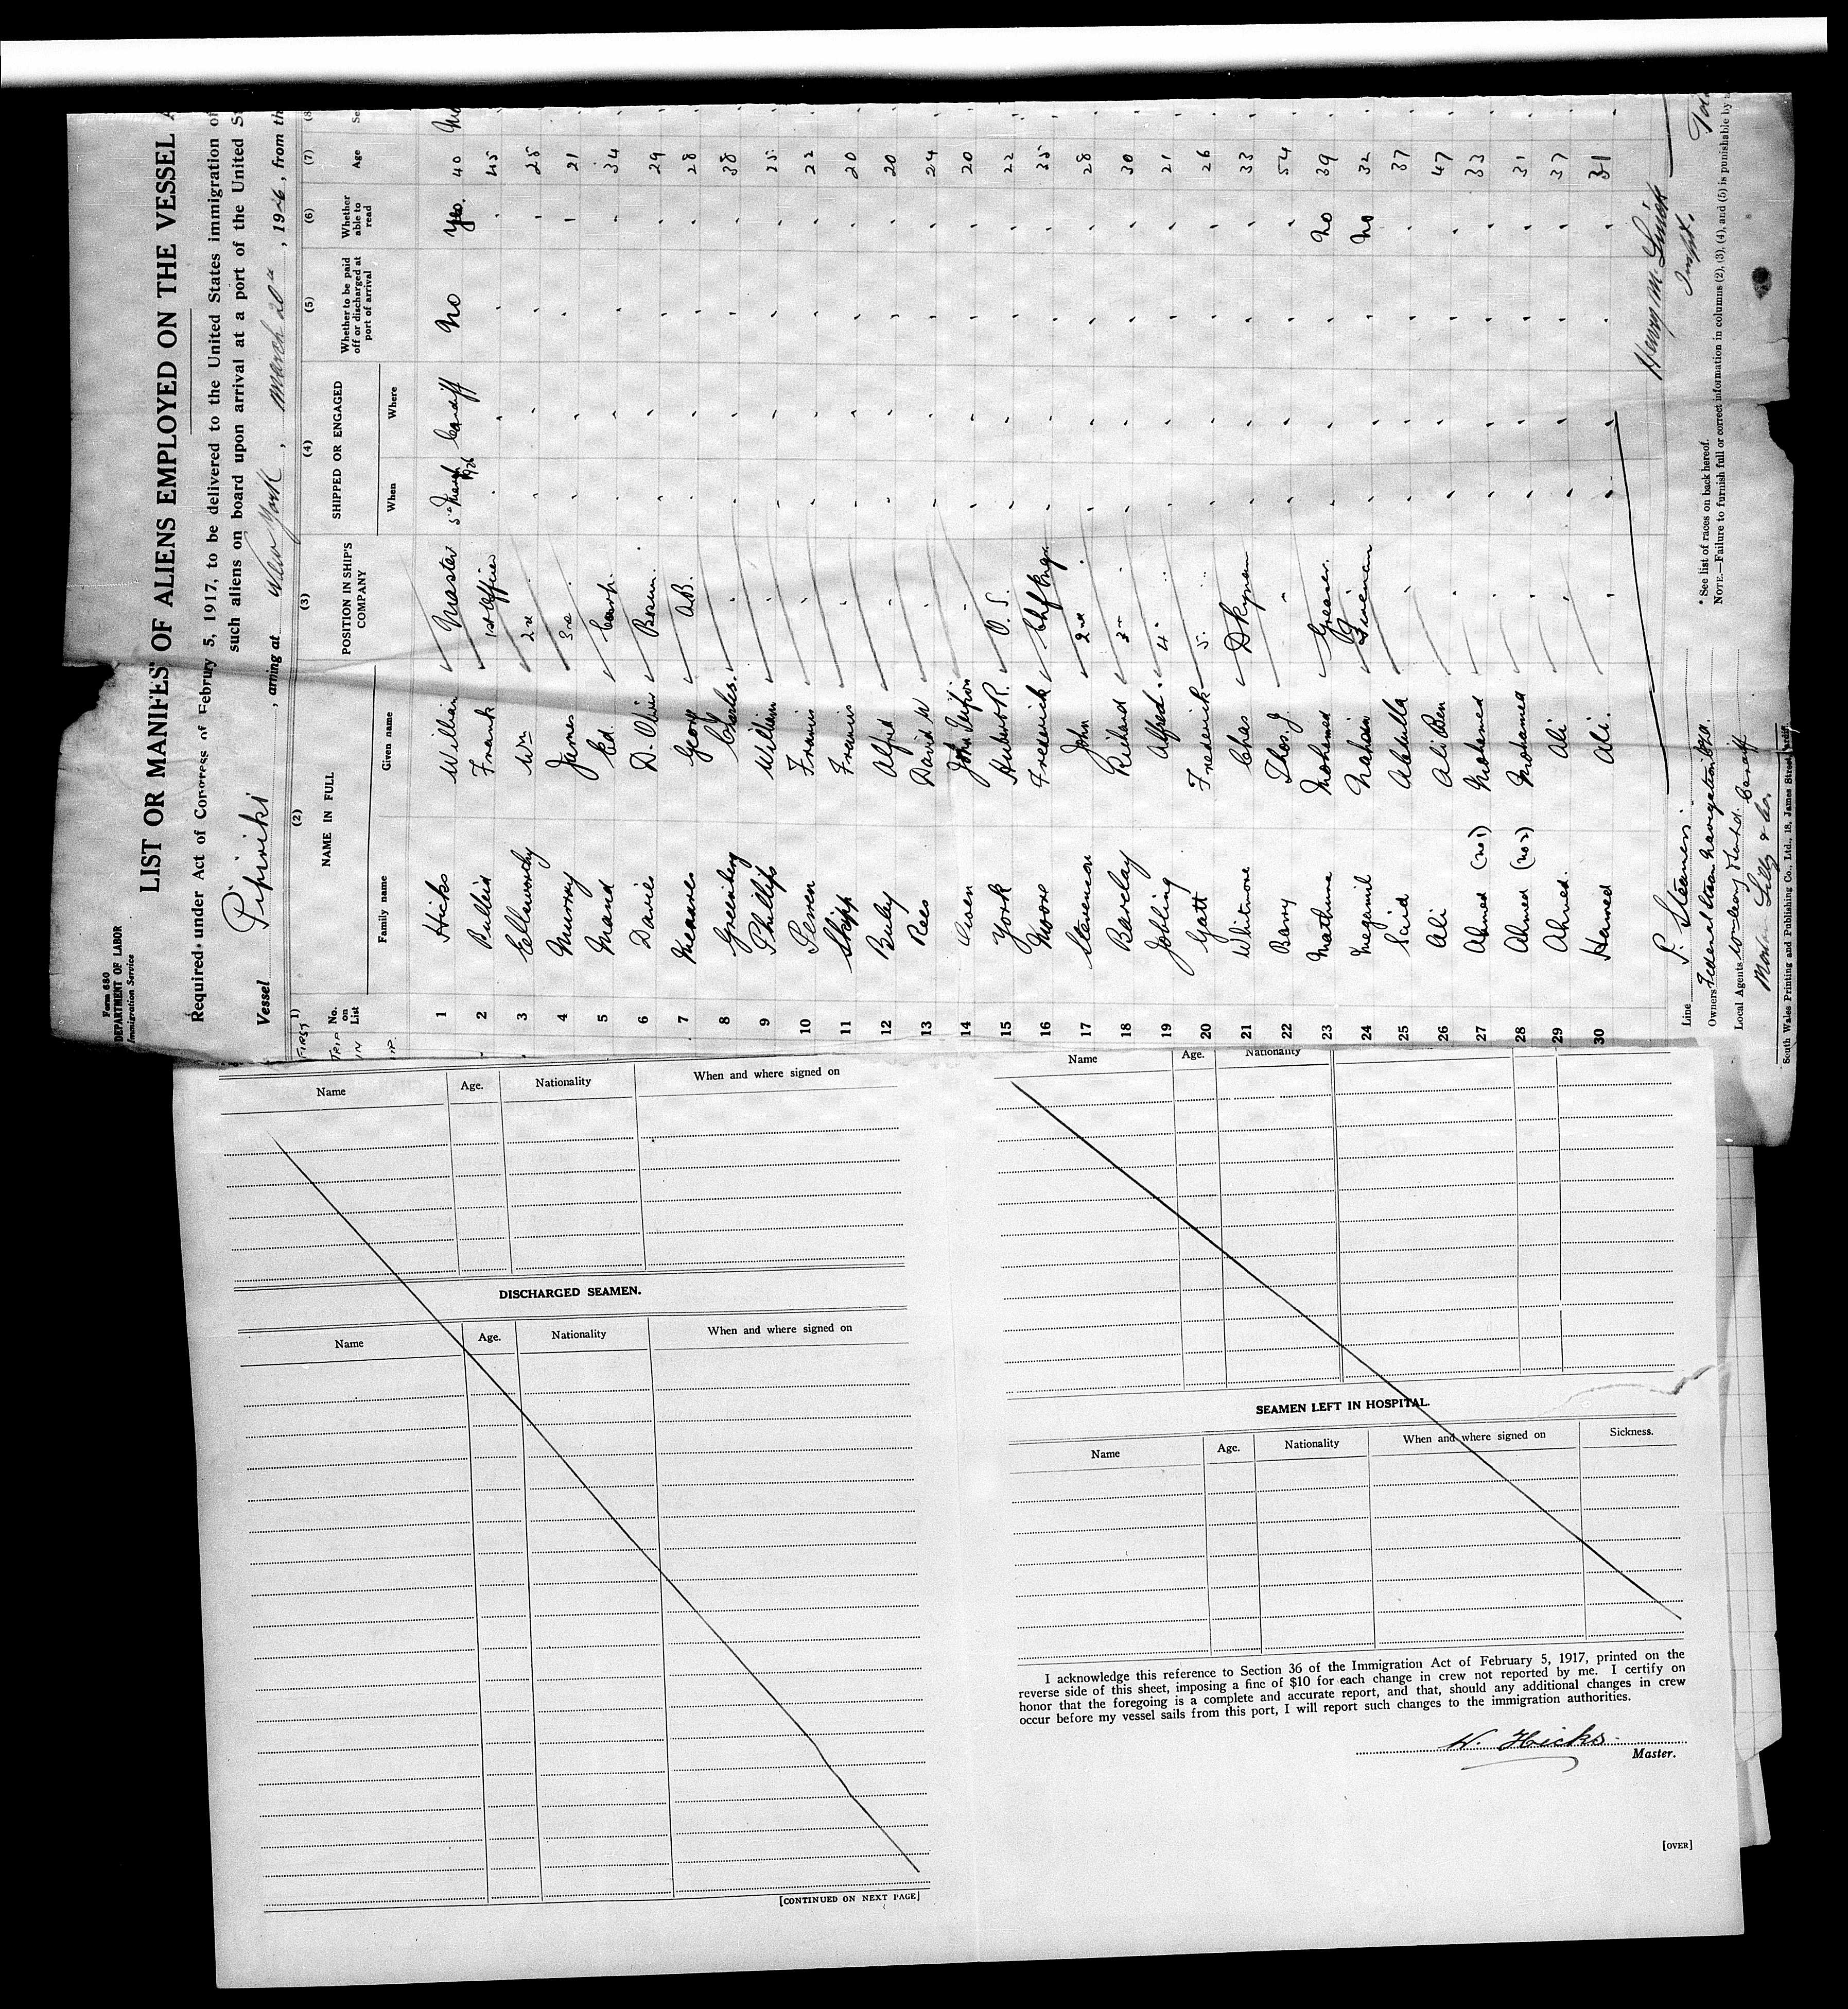 Form 680
DEPARTMENT OF LABOR
Immigration Service
LIST OR MANIFEST OF ALIENS EMPLOYED ON THE VESSEL A
Required under Act of Congress of February 5, 1917, to be delivered to the United States immigration of
such aliens on board upon arrival at a port of the United S
Vessel Pipiriki, arriving at New York, March 20th, 1926, from th
(1) (2) (3) (4) (5) (6) (7) (8
FIRST TRIP IN
No. on List NAME IN FULL POSITION IN SHIP'S COMPANY SHIPPED OR ENGAGED Whether to be paid off or discharged at port of arrival Whether able to read Age Se
Family name Given name When Where
1 Hicks William Master 5th March 1926 Cardiff No Yes. 40
2 Bulleid Frank 1st Officer " " " "
3 Ellsworthy Wm 2nd " " " " 25
4 Murray James 3rd " " " " 21
5 Mand Ed. Carp. " " " " 34
6 Davies D. Oliver Bosun. " " " " 29
7 Meanres George A.B. " " " " 28
8 Greenberg Charles. " " " " " 38
9 Phillips William " " " " " 25
10 Francis " " " " " 22
11 Skipp Francis " " " " " 20
12 Buley Alfred " " " " " 20
13 Rees David W " " " " " 24
14 Owen John " " " " " 20
15 York Hubert R. O.S. " " " " 22
16 Moore Frederick Chf Engr. " " " " 35
17 Stevenson John 2nd " " " " " 28
18 Barclay Richard 3rd " " " " " 30
19 Jobling Alfred. 4th " " " " " 21
20 Gyatt Frederick 5th " " " " " 26
21 Whitmore Chas Dkyman " " " " 33
22 Barry Thos. J. " " " " " 54
23 Mathuna Mohamed Greaser. " " " No 39
24 Megamil Fireman " " " No 32
25 Said Abdulla " " " " " 37
26 Ali Ali Ben " " " " " 47
27 Ahmed (No 1) Mohamed " " " " " 33
28 Ahmed (No 2) Mohamed " " " " " 31
29 Ahmed. Ali " " " " " 37
30 Hamed Ali. " " " " " 31
Line P. Steamers.
Owners Federal Steam Navigation Co.
Local Agents
Cardiff
Henry M.
Inspt.
* See list of races on back hereof.
NOTE.—Failure to furnish full or correct information in columns (2), (3), (4), and (5) is punishable by a
South Wales Printing and Publishing Co., Ltd., 18, James Street, Cardiff
Name Age. Nationality When and where signed on
DISCHARGED SEAMEN.
Name Age. Nationality When and where signed on
[CONTINUED ON NEXT PAGE]
Name Age. Nationality
SEAMEN LEFT IN HOSPITAL.
Name Age. Nationality When and where signed on Sickness.
I acknowledge this reference to Section 36 of the Immigration Act of February 5, 1917, printed on the
reverse side of this sheet, imposing a fine of $10 for each change in crew not reported by me. I certify on
honor that the foregoing is a complete and accurate report, and that, should any additional changes in crew
occur before my vessel sails from this port, I will report such changes to the immigration authorities.
W. Hicks.
Master.
[OVER]